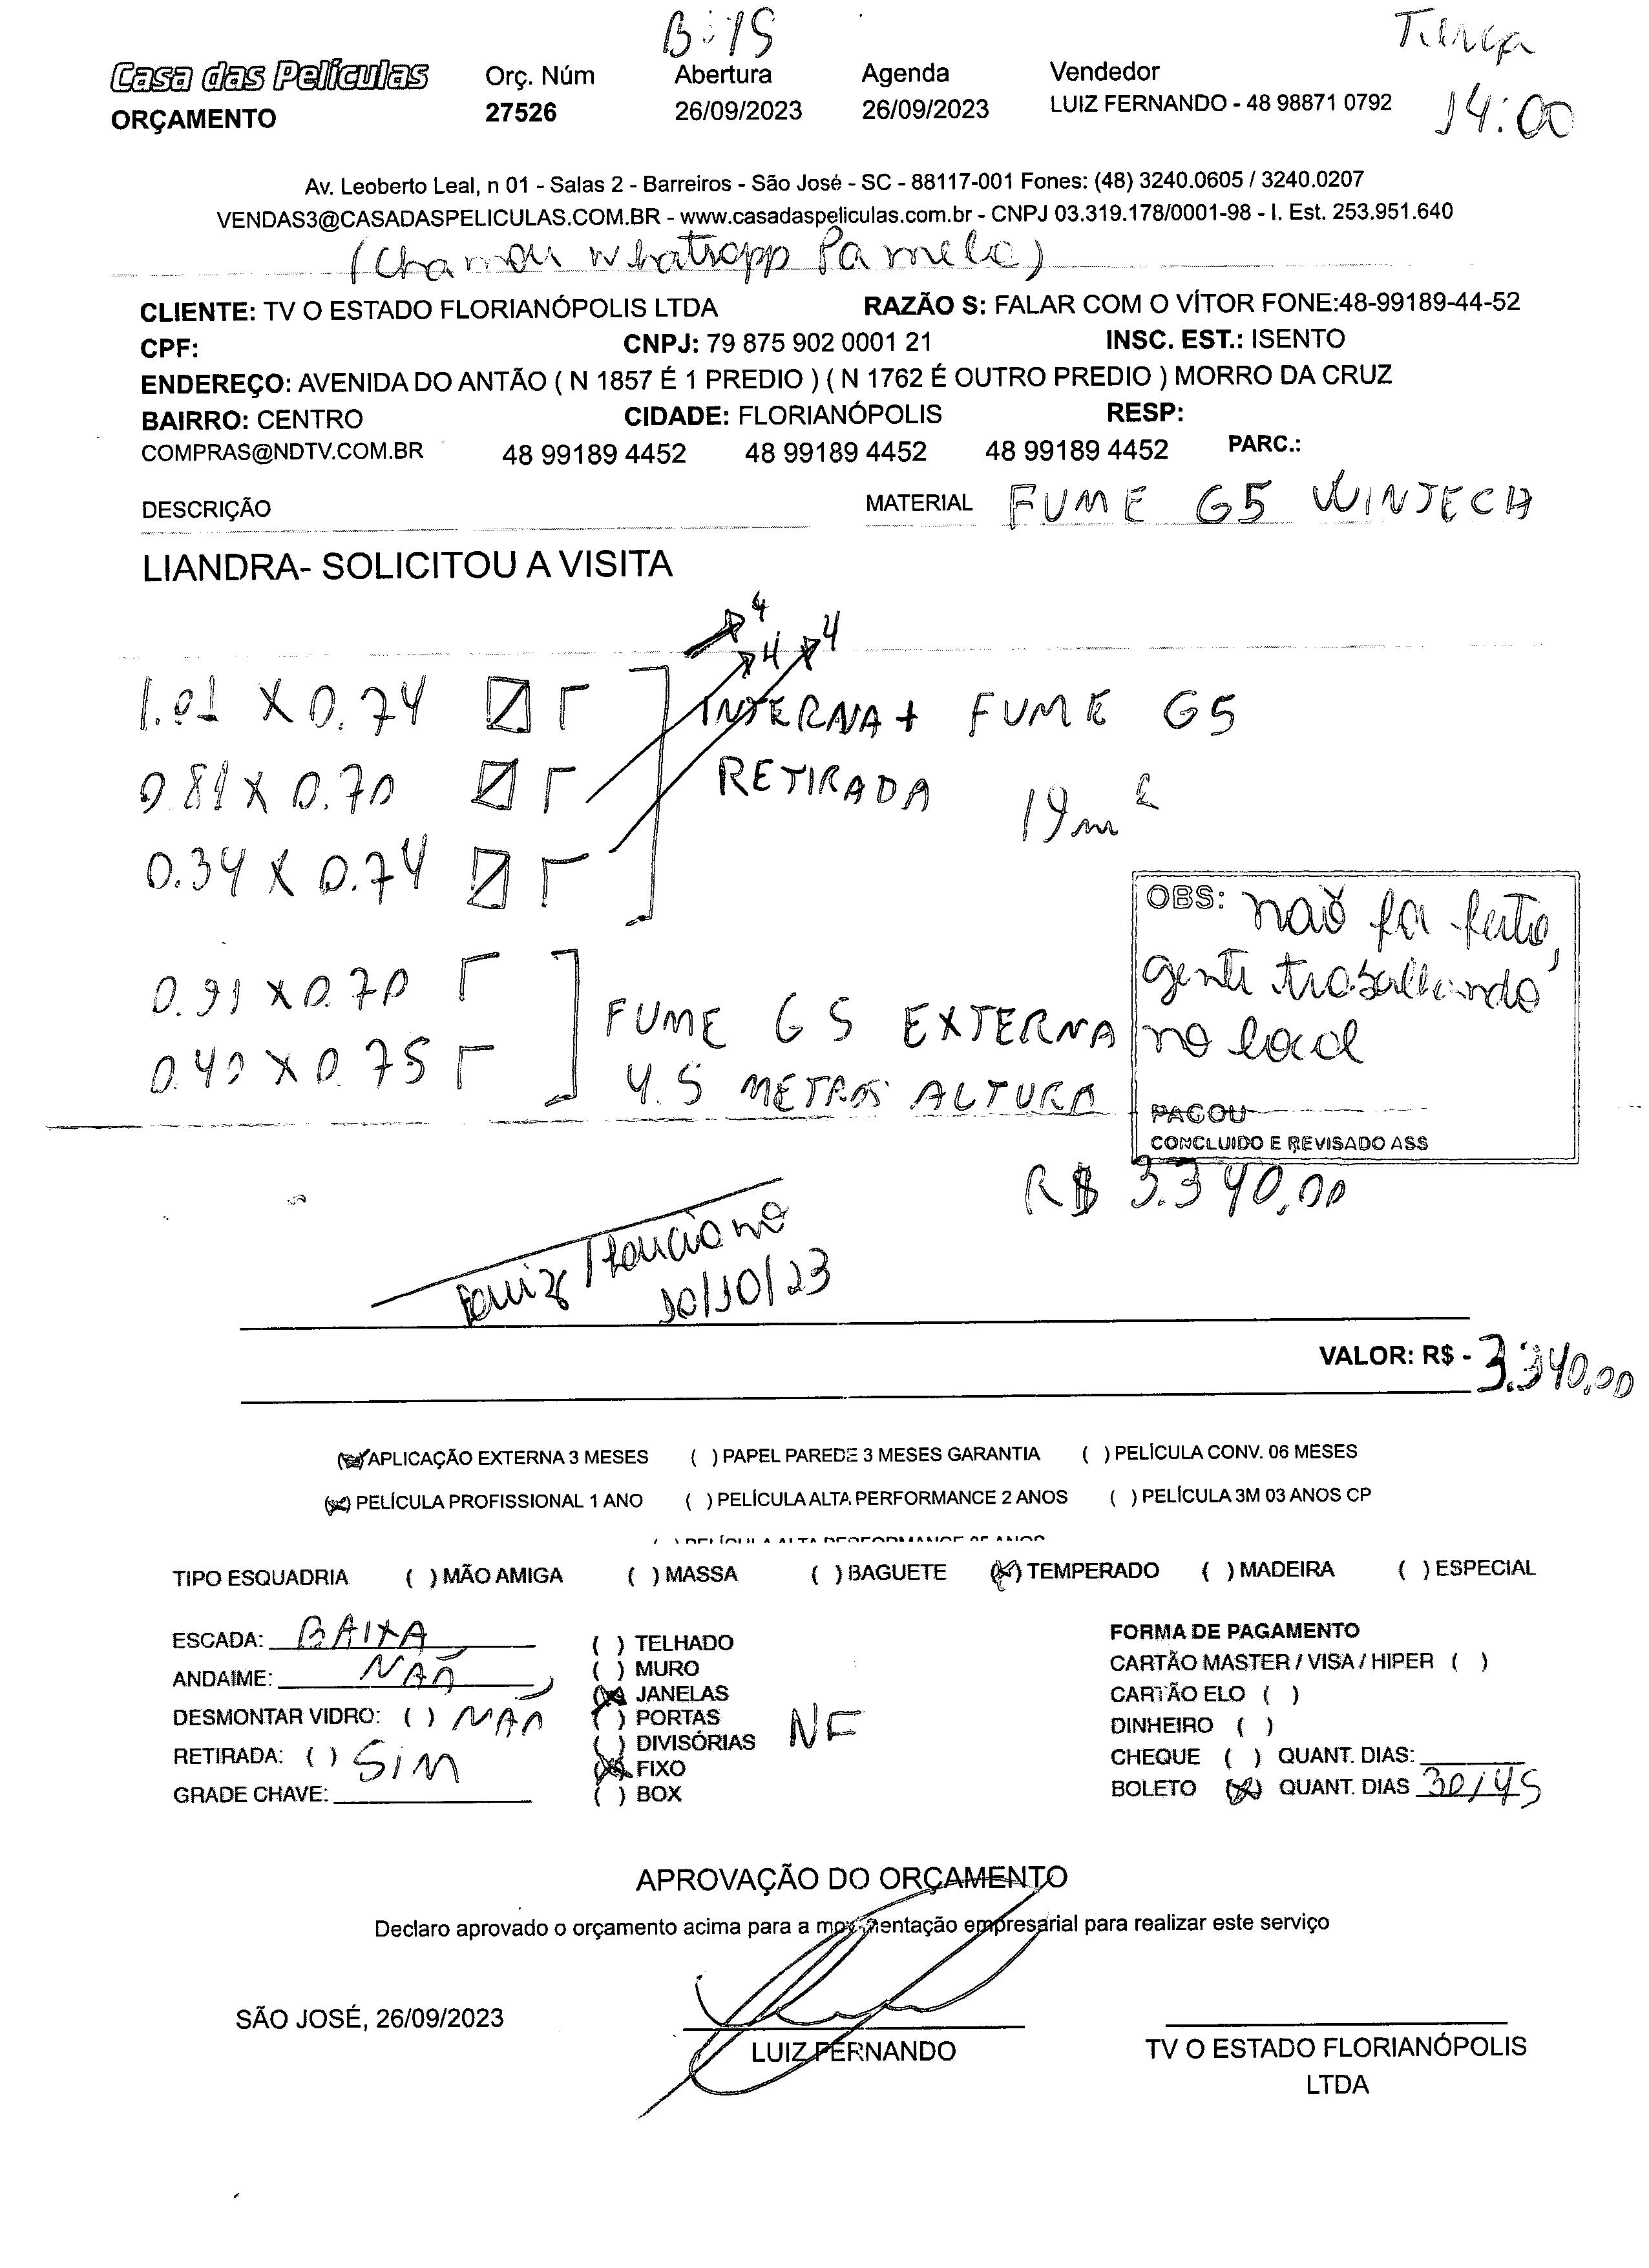 B:15
Terça
Casa das Películas
Orç. Núm
Abertura
Agenda
Vendedor
ORÇAMENTO
27526
26/09/2023
26/09/2023
LUIZ FERNANDO - 48 98871 0792
14:00
Av. Leoberto Leal, n 01 - Salas 2 - Barreiros - São José - SC - 88117-001 Fones: (48) 3240.0605 / 3240.0207
VENDAS3@CASADASPELICULAS.COM.BR - www.casadaspeliculas.com.br - CNPJ 03.319.178/0001-98 - I. Est. 253.951.640
(Chamou whatsapp Pamela)
CLIENTE: TV O ESTADO FLORIANÓPOLIS LTDA
RAZÃO S: FALAR COM O VÍTOR FONE:48-99189-44-52
CPF:
CNPJ: 79 875 902 0001 21
INSC. EST.: ISENTO
ENDEREÇO: AVENIDA DO ANTÃO ( N 1857 É 1 PREDIO ) ( N 1762 É OUTRO PREDIO ) MORRO DA CRUZ
BAIRRO: CENTRO
CIDADE: FLORIANÓPOLIS
RESP:
COMPRAS@NDTV.COM.BR
48 99189 4452
48 99189 4452
48 99189 4452
PARC.:
DESCRIÇÃO
MATERIAL FUME G5 WINTECH
LIANDRA- SOLICITOU A VISITA
4
4 4
1.01 X 0.74
INTERNA + FUME G5
0.81 X 0.70
RETIRADA
19m²
0.34 X 0.74
OBS: não foi feito,
gente trabalhando
no local
0.91 X 0.70
FUME G5 EXTERNA
0.40 X 0.75
4.5 METROS ALTURA
PAGOU
CONCLUIDO E REVISADO ASS
R$ 3.340,00
Luiz / Luciano
10/10/23
VALOR: R$ - 3.340,00
(X) APLICAÇÃO EXTERNA 3 MESES ( ) PAPEL PAREDE 3 MESES GARANTIA ( ) PELÍCULA CONV. 06 MESES
(X) PELÍCULA PROFISSIONAL 1 ANO ( ) PELÍCULA ALTA PERFORMANCE 2 ANOS ( ) PELÍCULA 3M 03 ANOS CP
( ) PELÍCULA ALTA PERFORMANCE 05 ANOS
TIPO ESQUADRIA ( ) MÃO AMIGA ( ) MASSA ( ) BAGUETE (X) TEMPERADO ( ) MADEIRA ( ) ESPECIAL
ESCADA: BAIXA
ANDAIME: NÃO
DESMONTAR VIDRO: ( ) NÃO
RETIRADA: ( ) SIM
GRADE CHAVE:
( ) TELHADO
( ) MURO
(X) JANELAS
( ) PORTAS
( ) DIVISÓRIAS
(X) FIXO
( ) BOX
NF
FORMA DE PAGAMENTO
CARTÃO MASTER / VISA / HIPER ( )
CARTÃO ELO ( )
DINHEIRO ( )
CHEQUE ( ) QUANT. DIAS:
BOLETO (X) QUANT. DIAS 30/45
APROVAÇÃO DO ORÇAMENTO
Declaro aprovado o orçamento acima para a movimentação empresarial para realizar este serviço
SÃO JOSÉ, 26/09/2023
LUIZ FERNANDO
TV O ESTADO FLORIANÓPOLIS
LTDA